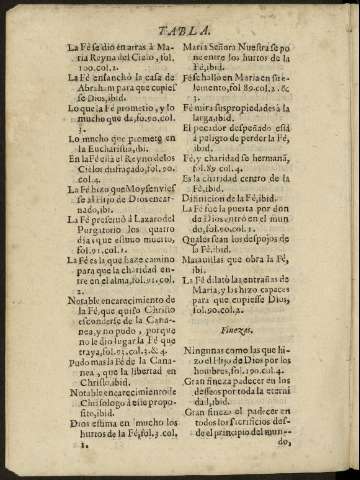 TABLA.
La Fè se diò en arras à Ma-
ria Reyna del Cielo, fol.
100.col.2.
La Fè ensanchò la casa de
Abraham para que cupies
se Dios, ibid.
Lo que la Fè prometio, y lo
mucho que dà, fo.90.col.
3.
Lo mucho que promete en
la Eucharistia, ibi.
En la Fè està el Reyno delos
Cielos disfraçado, fol.90.
col.4.
La Fè hizo que Moysen vies
se al Hijo de Dios encar-
nado, ibi.
La Fè preservò à Lazaro del
Purgatorio los quatro
dias que estuvo muerto,
fol.91.col.2.
La Fè es la que haze camino
para que la charidad en-
tre en el alma, fol.91.col.
2.
Notable encarecimiento de
la Fè, que quiso Christo
esconderse de la Cana-
nea, y no pudo, porque
no le dio lugar la Fè que
traya, fol.93.col.3.& 4.
Pudo mas la Fè de la Cana-
nea, que la libertad en
Christo, ibid.
Notable encarecimiento de
Chrisologo à este propo-
sito, ibid.
Dios estima en mucho los
hurtos de la Fè, fol.3.col.
1.
Maria Señora Nuestra se po
ne entre los hurtos de la
Fè, ibid.
Fè se hallò en Maria en su e-
lemento, fol 89.col.2.&
3.
Fè mira sus propiedades à la
larga, ibid.
El pecador despeñado està
à peligro de perder la Fè,
ibid.
Fè, y charidad se hermanã,
fol.89 col.4.
Es la charidad centro de la
Fè, ibid.
Difinicion de la Fè, ibid.
La Fè fue la puerta por don
de Dios entrò en el mun
do, fol.90.col.1.
Quales sean los despojos de
la Fè, ibid.
Maravillas que obra la Fè,
ibi.
La Fè dilatò las entrañas de
Maria, y las hizo capaces
para que cupiesse Dios,
fol.90.col.2.
Finezas.
Ningunas como las que hi-
zo el Hijo de Dios por los
hombres, fol.190.col.4.
Gran fineza padecer en los
desseos por toda la eterni
dad, ibid.
Gran fineza el padecer en
todos los sacrificios des-
de el principio del mun-
do,